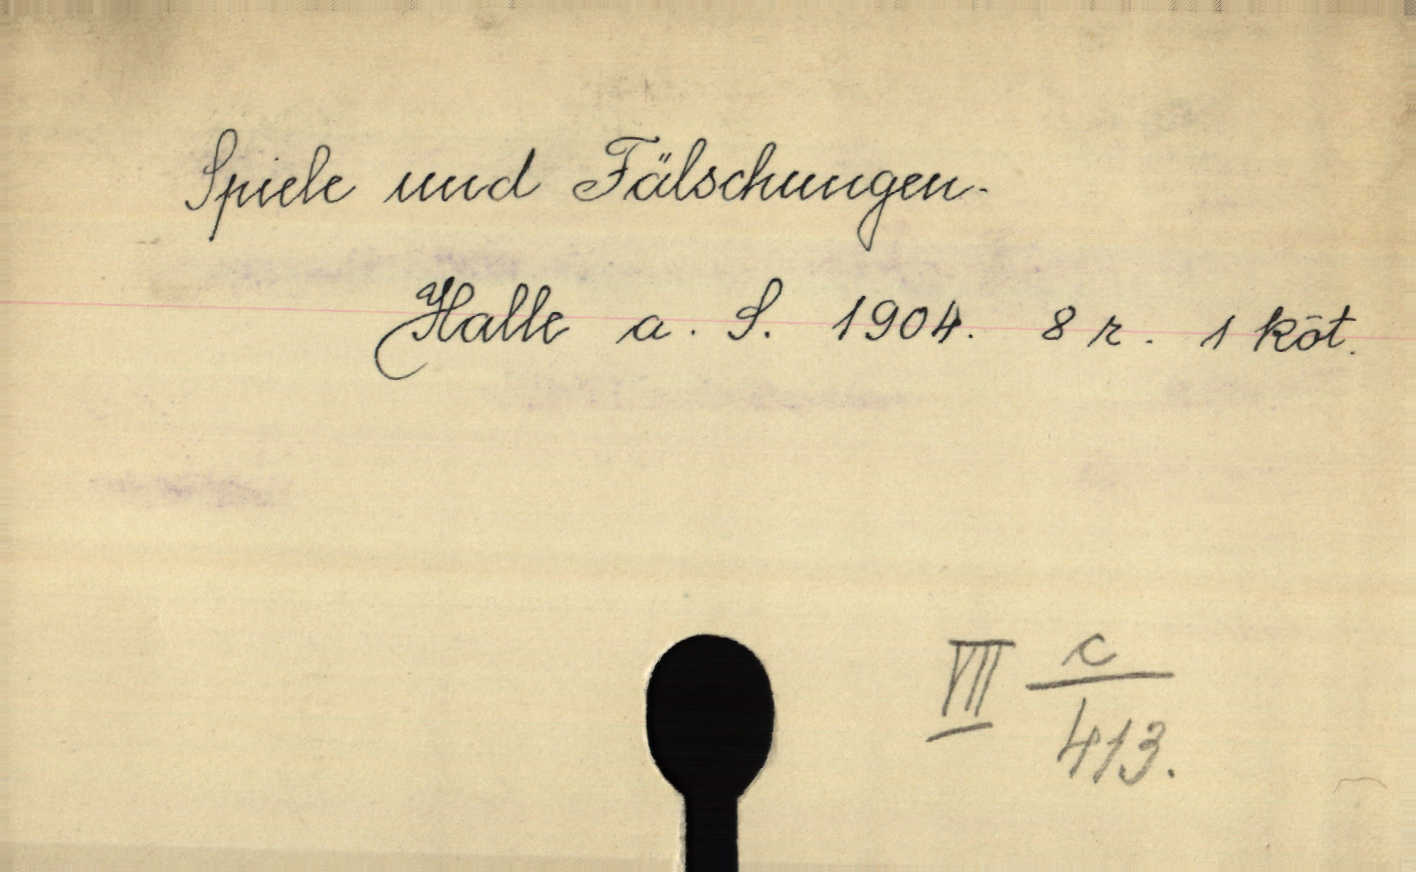 Spiele und Fälschungen.
Halle a. S. 1904. 8 r. 1 köt.
VII c/413.